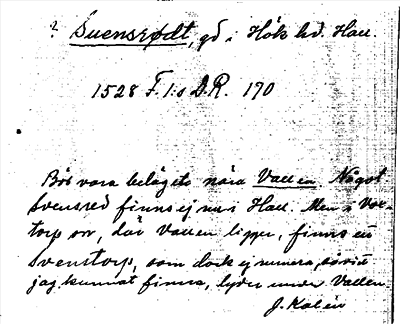 ? Suensrødt, gd i Höks hd. Hall.
1528 F. I:s D.R. 170
Bör vara beläget nära Vallen. Något
Svensred finns ej nu i Hall. Men i Vox-
torp sn, där Vallen ligger, finns ett
Svenstorp, som dock ej numera, såvitt
jag kunnat finna, lyder under Vallen.
J. Kalén